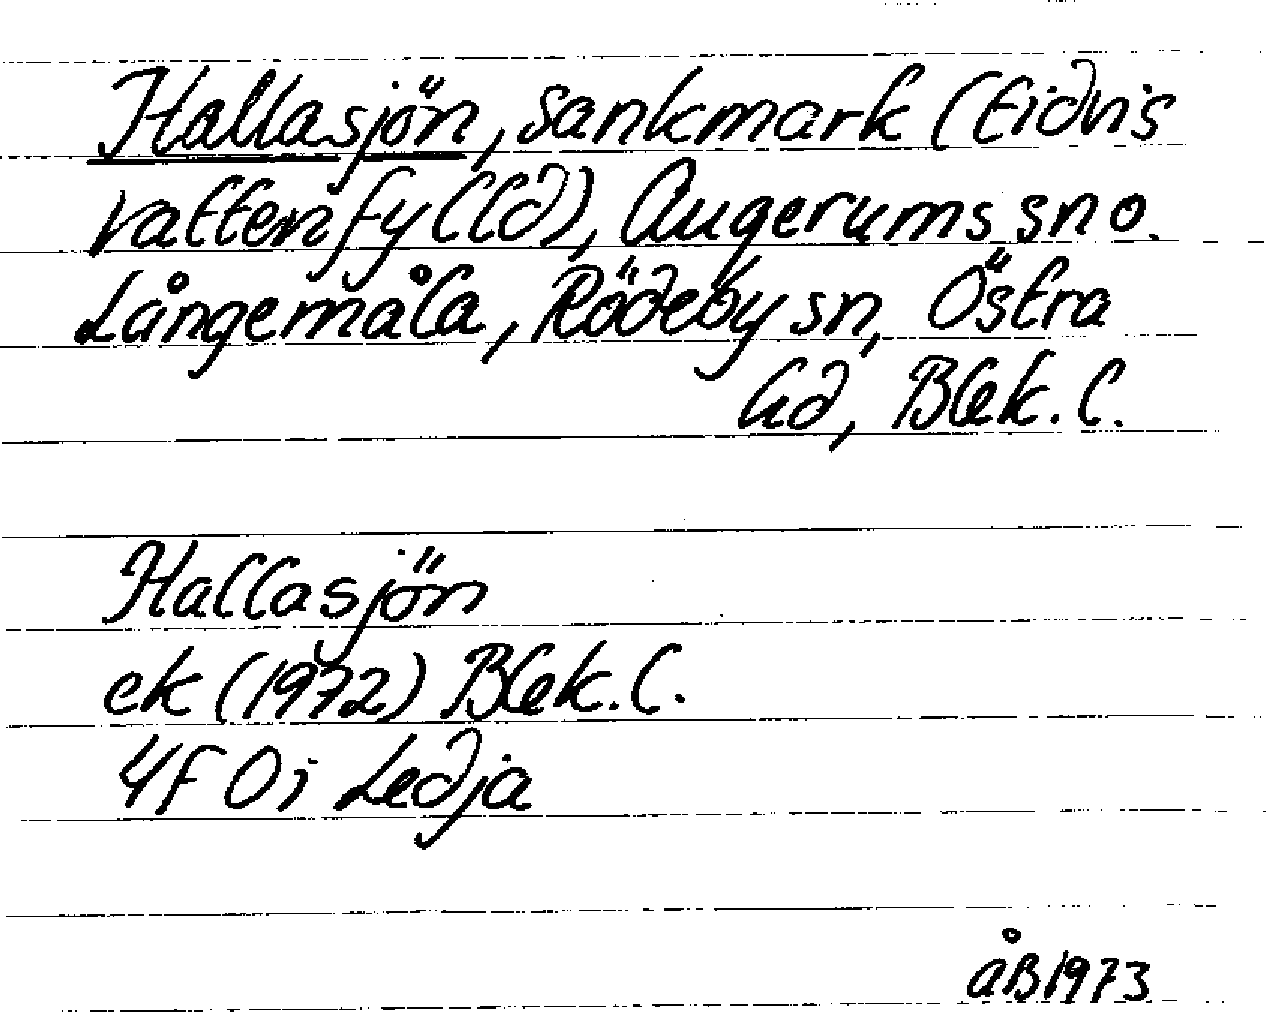 Hallasjön, sankmark (tidvis
vattenfylld), Augerums sn o.
Långemåla, Rödeby sn, Östra
hd, Blek. l.
Hallasjön
ek (1972) Blek. l.
4F 0i Ledja
ÅB 1973